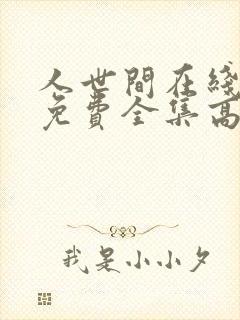 人世間在綫
免費全集高
我是小小夕